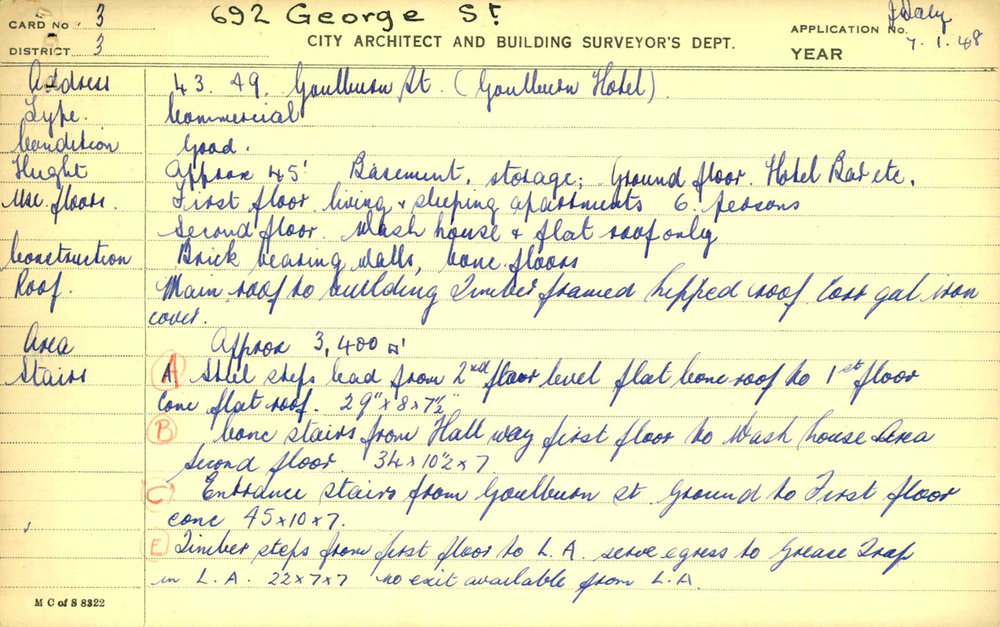 692 George St.
CARD No. 3
DISTRICT 3
CITY ARCHITECT AND BUILDING SURVEYOR'S DEPT.
J Daly
APPLICATION No.
7.1.48
YEAR
Address 43. 49. Goulburn St. (Goulburn Hotel)
Type. Commercial
Condition Good.
Height Approx 45' Basement, storage; Ground floor. Hotel Bar etc.
Use floors. First floor. living & sleeping apartments 6. persons
Second floor. Wash house & flat roof only
Construction Brick bearing walls, conc. floors
Roof. Main roof to building Timber framed hipped roof Corr gal iron
cover.
Area Approx 3,400 □'
Stairs A Steel steps lead from 2nd floor level flat conc roof to 1st floor
Conc flat roof. 29" x 8 x 7½"
B Conc stairs from Hall way first floor to Wash house Area
Second floor 34 x 10½ x 7
C Entrance stairs from Goulburn st Ground to First floor
conc 45 x 10 x 7.
E Timber steps from first floor to L.A. serve egress to Grease Trap
in L.A. 22 x 7 x 7 no exit available from L.A
M C of S 8322